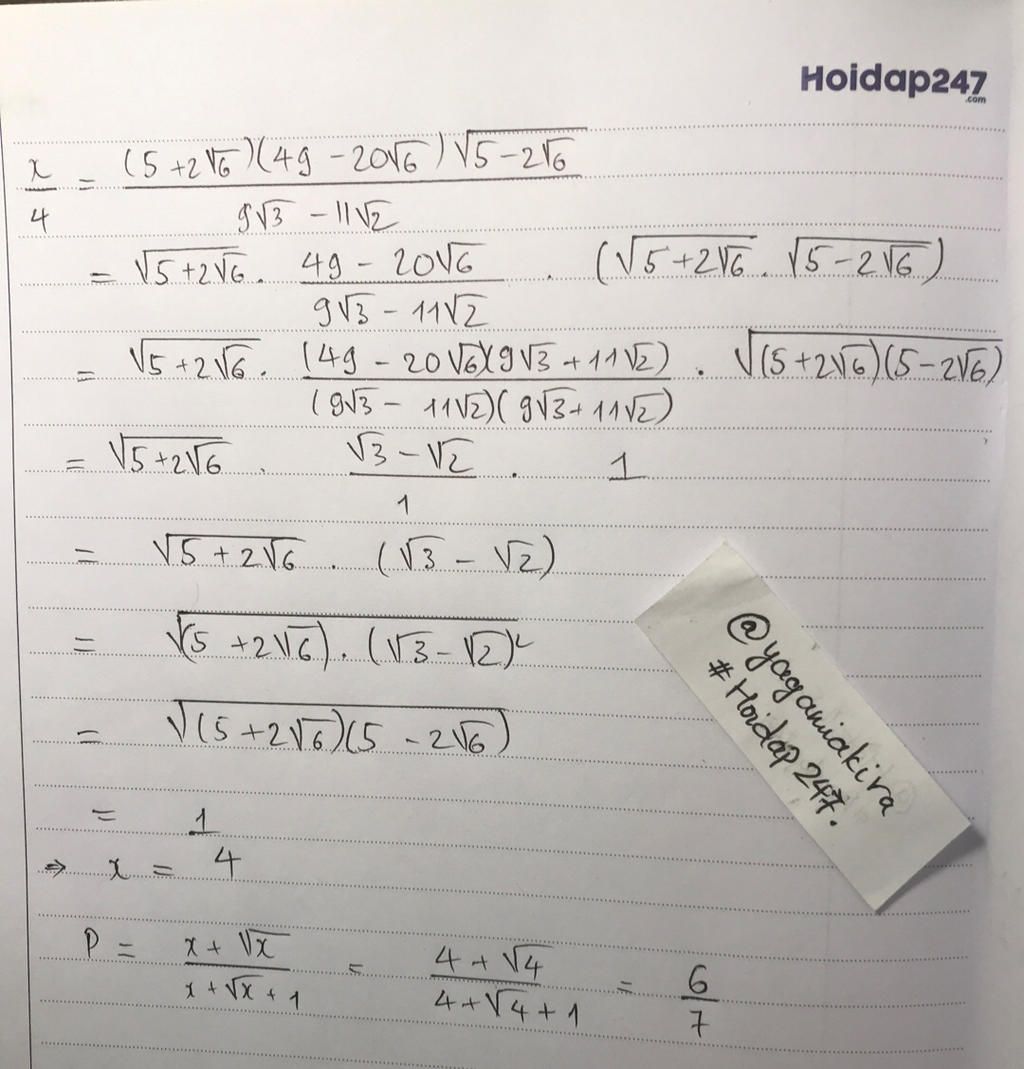 Hoidap247
.com
x/4 = (5+2√6)(49-20√6)√(5-2√6) / (9√3-11√2)
= √(5+2√6) . (49-20√6)/(9√3-11√2) . (√(5+2√6) . √(5-2√6))
= √(5+2√6) . (49-20√6)(9√3+11√2) / (9√3-11√2)(9√3+11√2) . √((5+2√6)(5-2√6))
= √(5+2√6) . (√3-√2)/1 . 1
= √(5+2√6) . (√3-√2)
= √((5+2√6).(√3-√2)²)
= √((5+2√6)(5-2√6))
= 1
⇒ x = 4
P = (x+√x)/(x+√x+1) = (4+√4)/(4+√4+1) = 6/7
@yagamiakira
#Hoidap247.